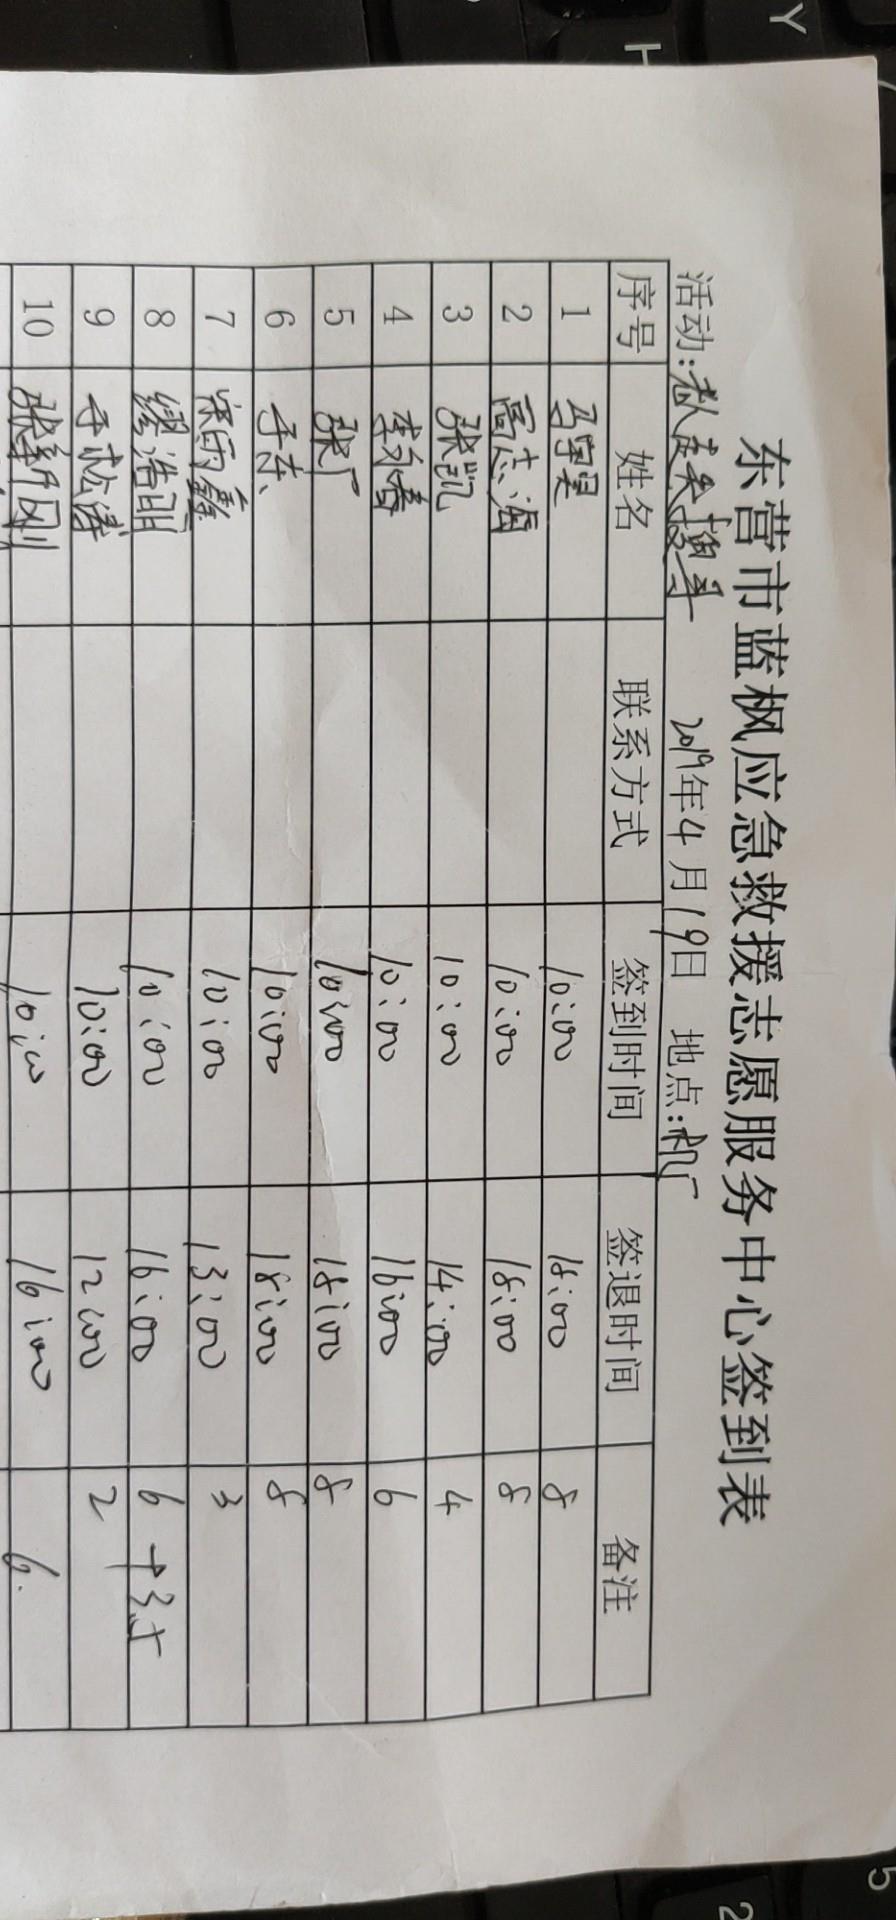 东营市蓝枫应急救援志愿服务中心签到表
活动:老人走失搜寻 2019年4月19日 地点:机厂
序号 姓名 联系方式 签到时间 签退时间 备注
1 马宇昊 10:00 18:00 8
2 高志海 10:00 18:00 8
3 张凯 10:00 14:00 4
4 李永春 10:00 16:00 6
5 张广 10:00 18:00 8
6 于杰 10:00 18:00 8
7 宋雨鑫 10:00 13:00 3
8 缪浩明 10:00 16:00 6 +3.5
9 于松涛 10:00 12:00 2
10 张新刚 10:00 16:00 6.
Y
H
5
2